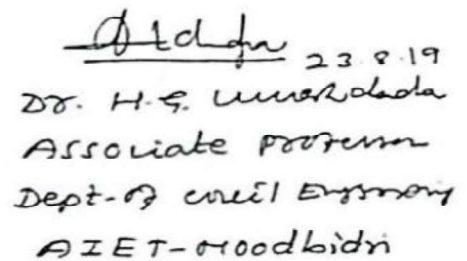 23.8.19
Dr. H.G. Umeshdada
Associate Professor
Dept-of civil Engineering
AIET-Moodbidri